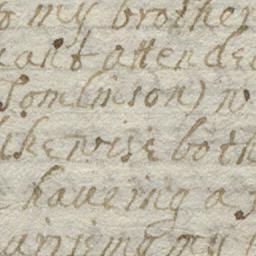 my brother
attended
Tomlinson)
likewise both
haueing a
my